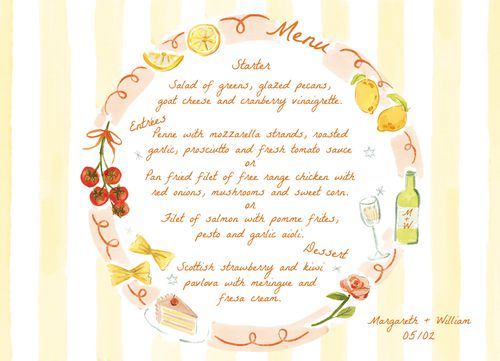 Menu
Starter
Salad of greens, glazed pecans,
goat cheese and cranberry vinaigrette.
Entrées
Penne with mozzarella strands, roasted
garlic, prosciutto and fresh tomato sauce
or
Pan fried filet of free range chicken with
red onions, mushrooms and sweet corn.
or
Filet of salmon with pomme frites,
pesto and garlic aioli.
Dessert
Scottish strawberry and kiwi
pavlova with meringue and
fresa cream.
M
+
W
Margareth + William
05/02